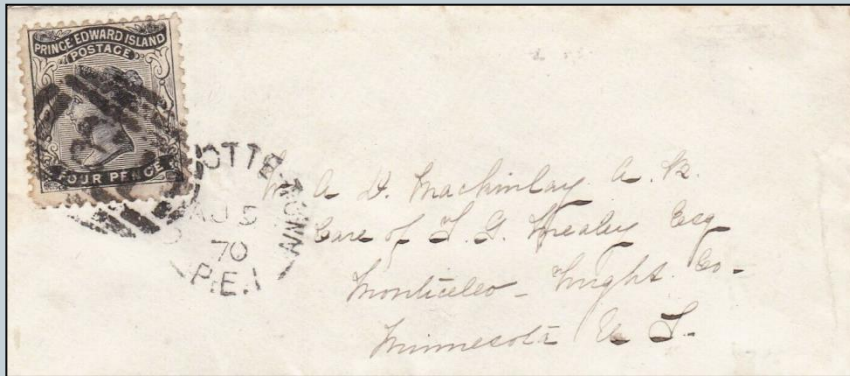 PRINCE EDWARD ISLAND
POSTAGE
FOUR PENCE
OTTE-TOWN
AU 5
70
P.E.I
A. D. Mackinlay A. B.
Care of T. G. Mealey Esq
Monticeleo - Wright. Co-
Minnesota U S.